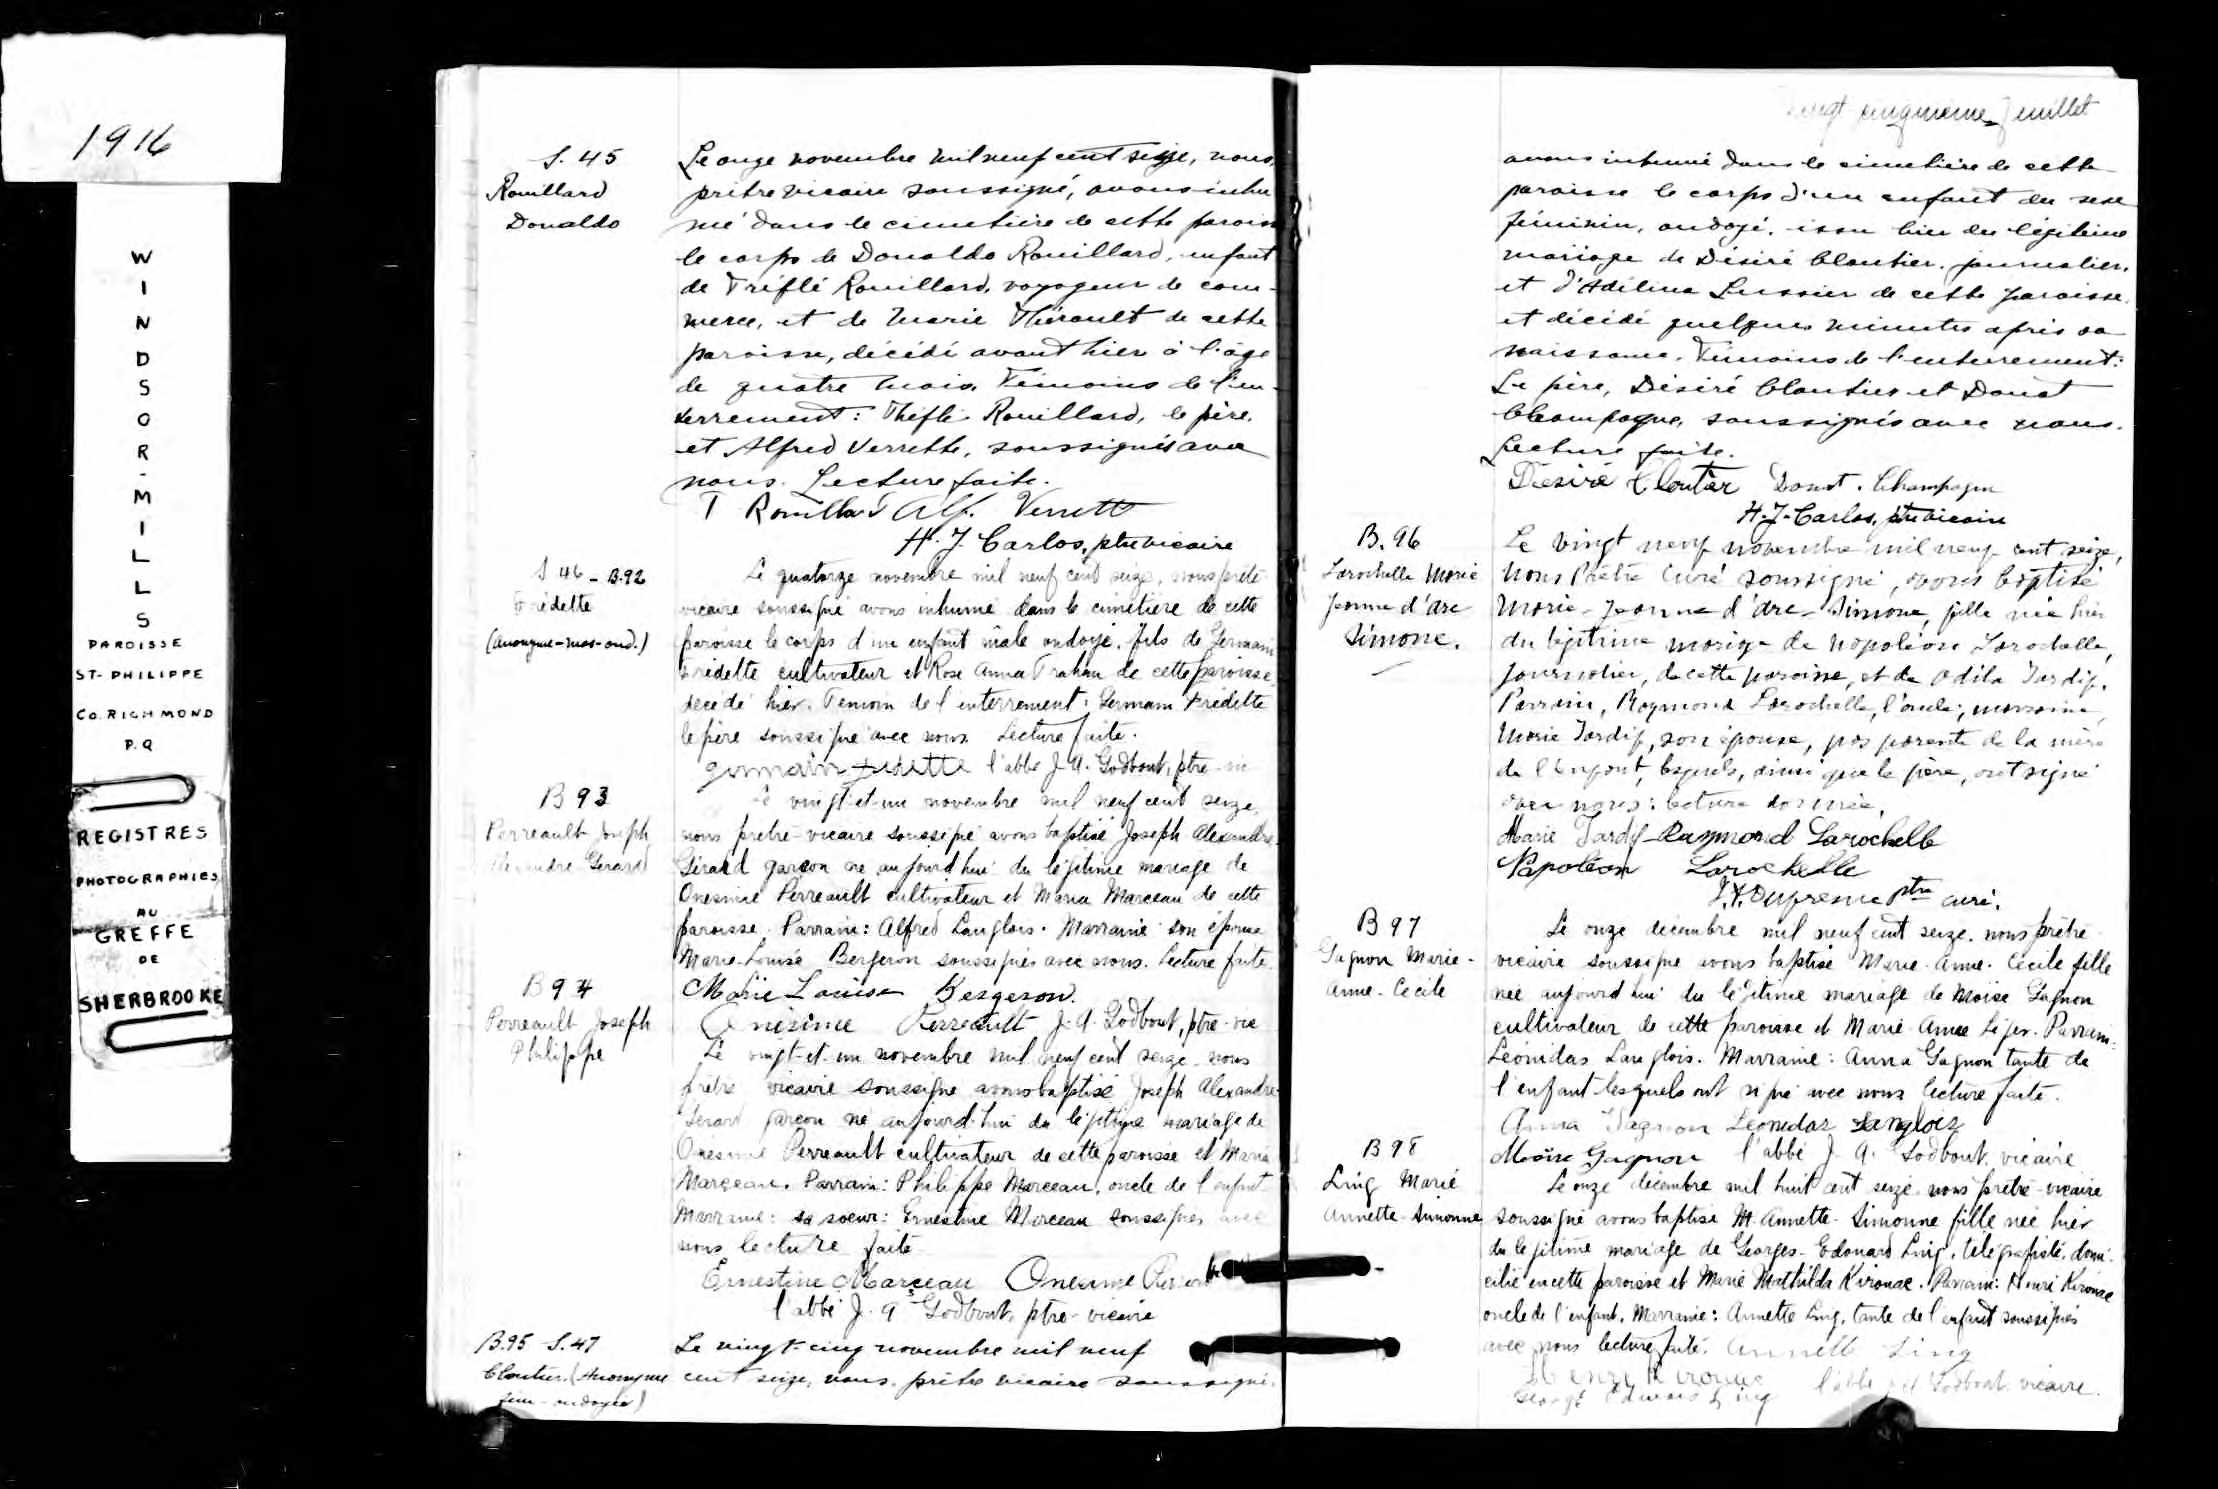 1916
WINDSOR-MILLS
PAROISSE
ST-PHILIPPE
CO. RICHMOND
P.Q
REGISTRES
PHOTOGRAPHIES
AU
GREFFE
DE
SHERBROOKE
S. 45
Rouillard
Donaldo
Le onze novembre mil neuf cent seize, nous,
prêtre vicaire soussigné, avons inhu
mé dans le cimetière de cette paroisse
le corps de Donaldo Rouillard, enfant
de Trifflé Rouillard, voyageur de com-
merce, et de Marie Thérault de cette
paroisse, décédé avant hier à l'âge
de quatre mois. Témoins de l'en-
terrement: Thifflé Rouillard, le père,
et Alfred Verrette, soussignés avec
nous. Lecture faite.
T Rouillard Alf. Verrett
H. J. Carlos, ptre vicaire
S 46 - B.92
Frédette
(Anonyme-mas-ond.)
Le quatorze novembre mil neuf cent seize, nous prêtre
vicaire soussigné avons inhumé dans le cimetière de cette
paroisse le corps d'un enfant mâle ondoyé, fils de Germain
Frédette cultivateur et Rose Anna Trahan de cette paroisse,
décédé hier. Témoin de l'enterrement: Germain Frédette
le père soussigné avec nous. Lecture faite.
Germain Fredette l'abbé J. A. Godbout, ptre-vic
B 93
Perreault Joseph
Alexandre Gérard
Le vingt-et-un novembre mil neuf cent seize,
nous prêtre-vicaire soussigné avons baptisé Joseph Alexandre-
Gérard garçon né aujourd'hui du légitime mariage de
Onésime Perreault cultivateur et Maria Marceau de cette
paroisse. Parrain: Alfred Langlois. Marraine son épouse
Marie-Louise Bergeron soussignés avec nous. Lecture faite.
Marie Louise Bergeron.
Onésime Perreault J. A. Godbout, ptre-vic
B 94
Perreault Joseph
Philippe
Le vingt-et-un novembre mil neuf cent seize nous
prêtre vicaire soussigné avons baptisé Joseph Alexandre
Gérard garçon né aujourd'hui du légitime mariage de
Onésime Perreault cultivateur de cette paroisse et Maria
Marceau. Parrain: Philippe Marceau, oncle de l'enfant
Marraine: sa soeur: Ernestine Marceau soussignés avec
nous lecture faite
Ernestine Marceau Onesime
l'abbé J. A. Godbout, ptre-vicaire
B.95 S.47
Cloutier (Anonyme
fém-ondoyée)
Le vingt-cinq novembre mil neuf
cent seize, nous, prêtre vicaire soussigné,
Vingt cinquième feuillet
avons inhumé dans le cimetière de cette
paroisse le corps d'un enfant du sexe
féminin, ondoyé, issu hier du légitime
mariage de Désiré Cloutier, journalier,
et d'Adélina Lussier de cette paroisse,
et décédé quelques minutes après sa
naissance. Témoins de l'enterrement:
Le père, Désiré Cloutier et Donat
Champagne, soussignés avec nous.
Lecture faite.
Désiré Cloutier Donat Champagne
H-J-Carlos, ptre vicaire
B. 96
Larochelle Marie
Jeanne d'Arc
Simone.
Le vingt neuf novembre mil neuf cent seize,
Nous Prêtre Curé soussigné, avons baptisé
Marie-Jeanne d'Arc-Simone, fille née hier
du légitime mariage de Napoléon Larochelle,
journalier, de cette paroisse, et de Odila Tardif.
Parrain, Raymond Larochelle, l'oncle; marraine,
Marie Tardif, son épouse, pas parente de la mère
de l'Enfant, lesquels, ainsi que le père, ont signé
avec nous: lecture donnée.
Marie Tardif Raymond Larochelle
Napoléon Larochelle
Dufresne Ptre curé.
B 97
Gagnon Marie-
Anne-Cécile
Le onze décembre mil neuf cent seize, nous prêtre-
vicaire soussigné avons baptisé Marie-Anne-Cécile fille
née aujourd'hui du légitime mariage de Moïse Gagnon
cultivateur de cette paroisse et Marie-Anne Liger. Parrain:
Léonidas Langlois. Marraine: Anna Gagnon tante de
l'enfant lesquels ont signé avec nous lecture faite.
Anna Gagnon Léonidas Langlois
Moïse Gagnon l'abbé J. A. Godbout vicaire
B 98
Ling Marie
Annette-Simonne
Le onze décembre mil huit cent seize nous prêtre-vicaire
soussigné avons baptisé M. Annette-Simonne fille née hier
du légitime mariage de Georges-Edouard Ling, télégraphiste, domi-
cilié en cette paroisse et Marie Mathilda Kirouac. Parrain: Henri Kirouac
oncle de l'enfant. Marraine: Annette Ling, tante de l'enfant soussignés
avec nous lecture faite. Annette Ling
Henri Kirouac l'abbé J. A. Godbout, vicaire.
George Edouard Ling